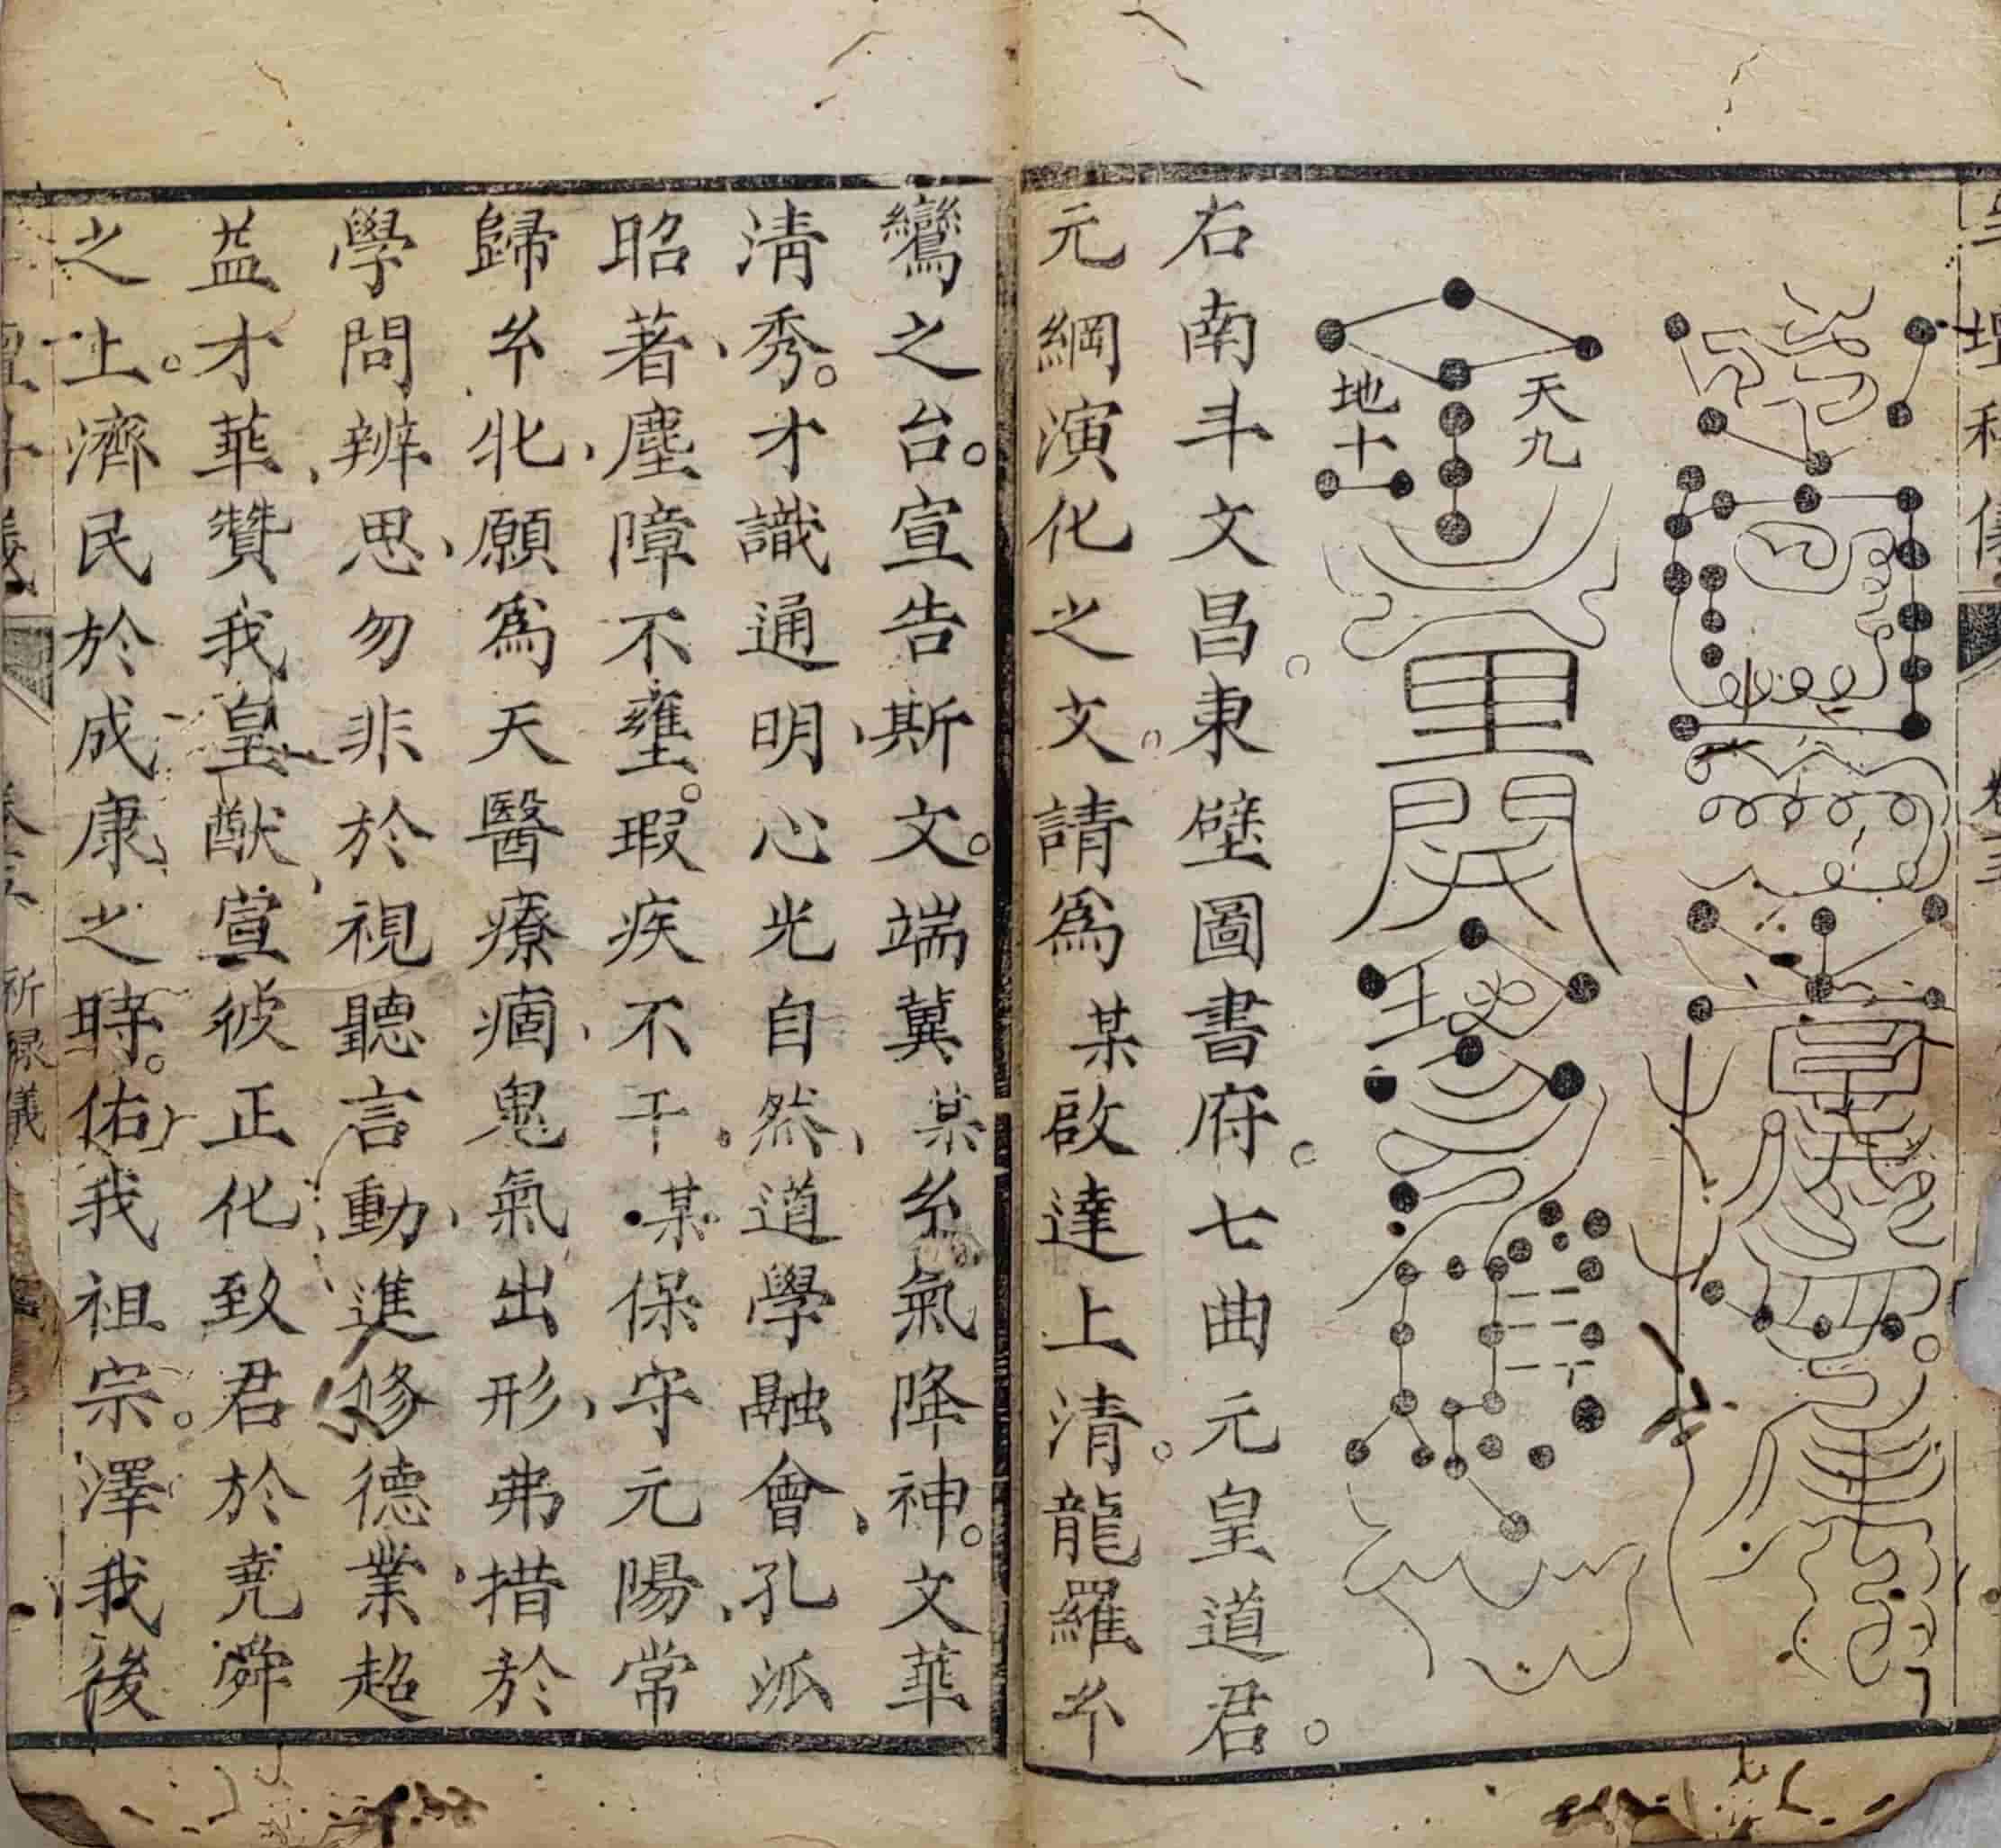 壇科儀
天九
地十
右南斗文昌東壁圖書府。七曲元皇道君。
元綱演化之文。請爲某啟達上清。龍羅𠫔
鸞之台。宣告斯文。端冀某糸氣降神。文華
清秀。才識通明、心光自然、道學融會、孔派
昭著、塵障不壅。瑕疾不干、某保守元陽、常
歸𠫔化、願爲天醫療痼、鬼氣出形、弗措於
學問辨思、勿非於視聽言動、進修德業、超
益才華、贊我皇猷、宣彼正化致君於堯舜
之上。濟民於成康之時。佑我祖宗。澤我後
祈祿儀